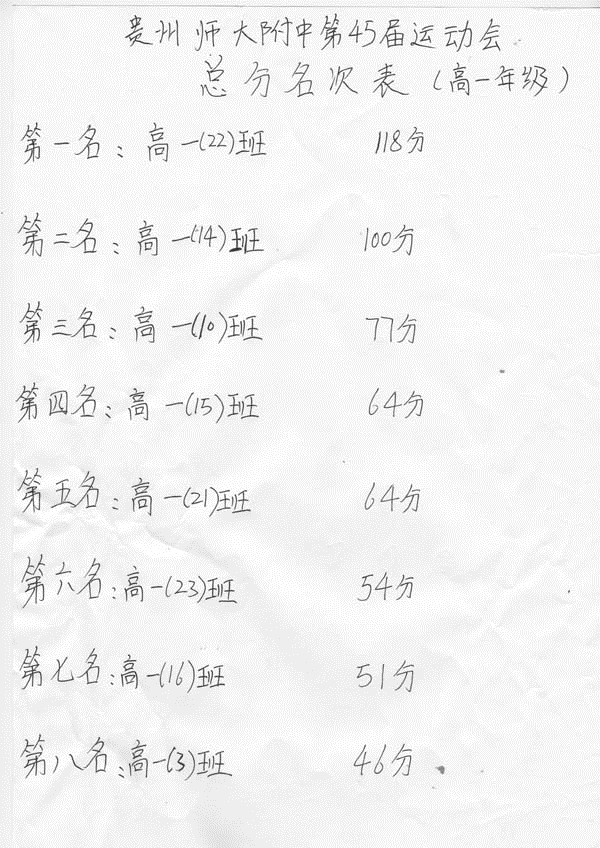 贵州师大附中第45届运动会
总分名次表(高一年级)
第一名:高一(22)班 118分
第二名:高一(14)班 100分
第三名:高一(10)班 77分
第四名:高一(15)班 64分
第五名:高一(21)班 64分
第六名:高一(23)班 54分
第七名:高一(16)班 51分
第八名:高一(3)班 46分